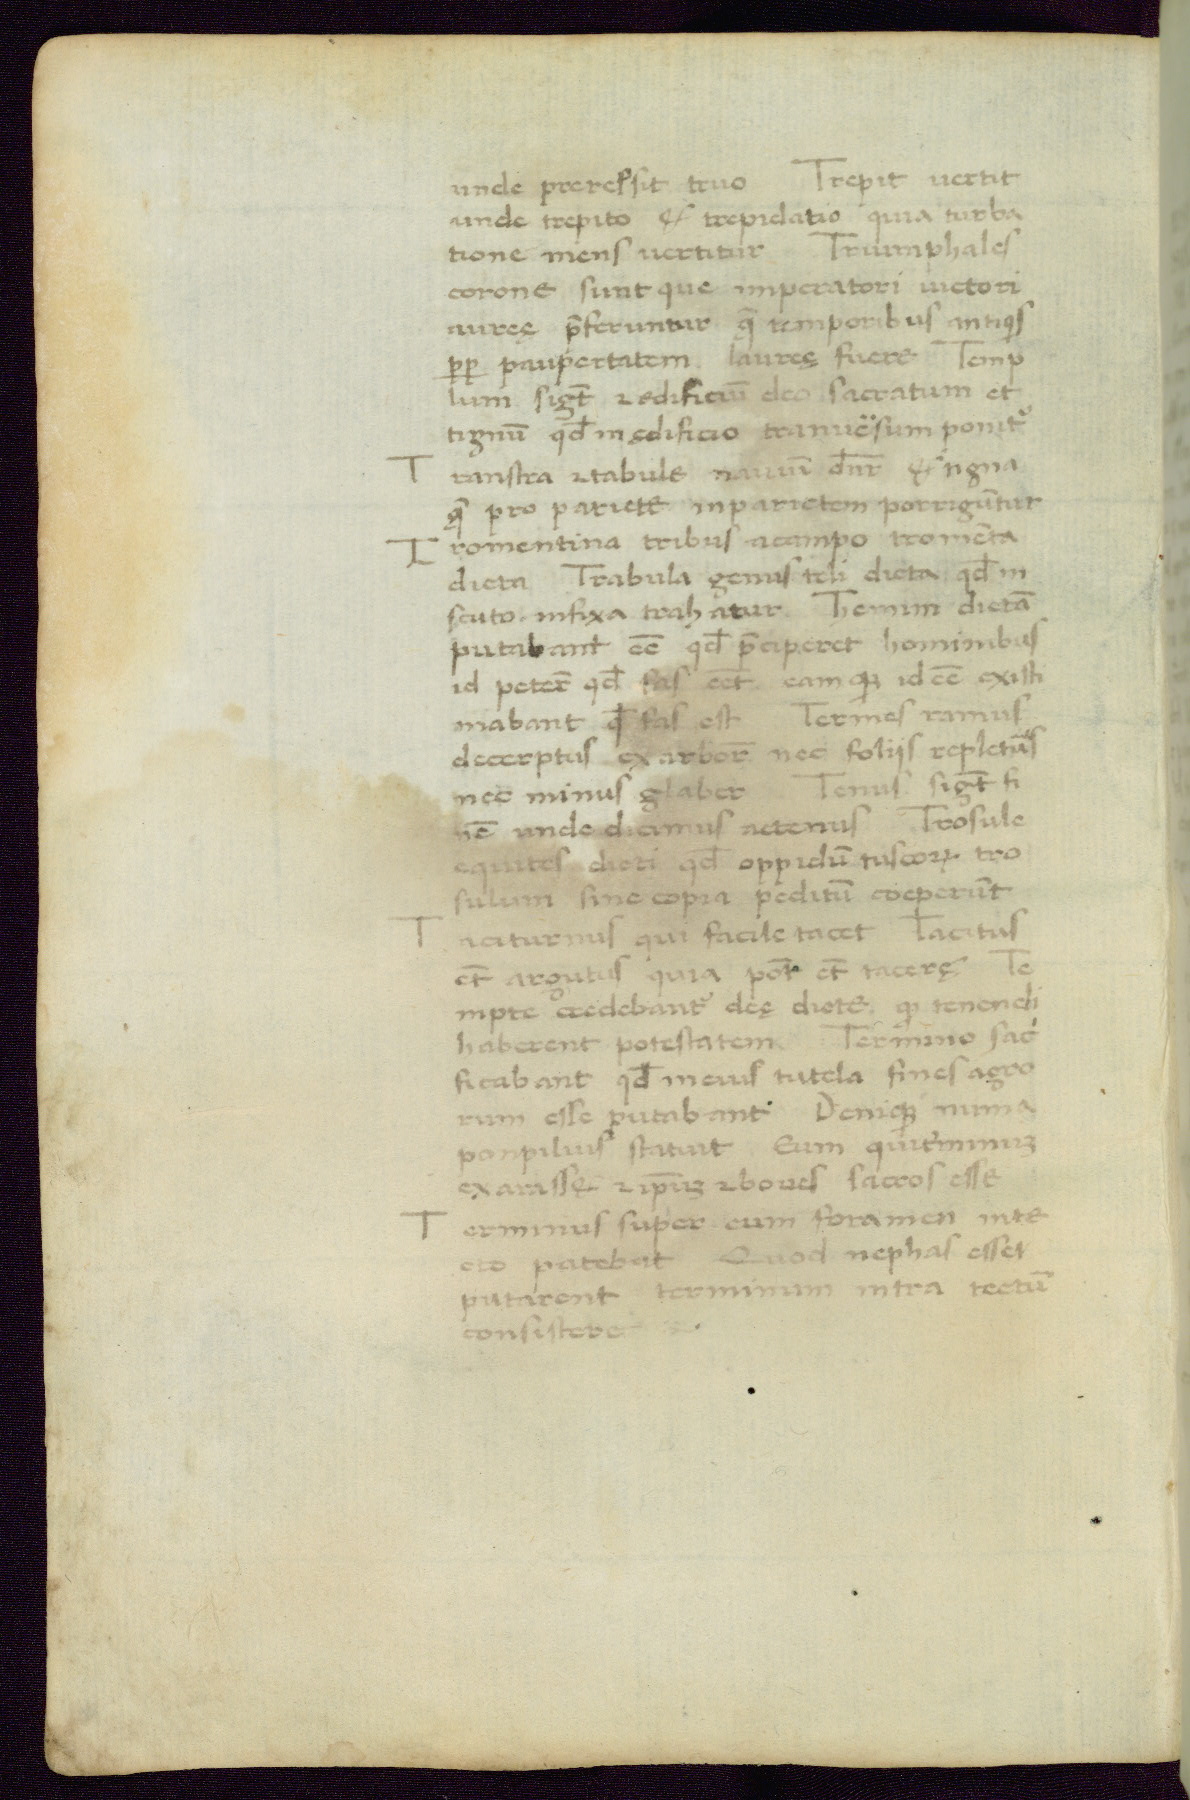 unde prorepsit truo Trepit vertit
unde trepito & trepidatio quia turba
tione mens uertitur Triumphales
corone sunt que imperatori uictori
auręę p̄feruntur q̄ temporibus antiqs
pp paupertatem lauręę fuere Temp
lum sigt̄ & edificiū deo sacratum et
tignū qd̄ in ędificio transuersum ponitr
Transtra & tabule nauiū dn̄r & tigna
q̄ pro pariete in parietem porrigūtur
Tromentina tribus a campo tromēta
dicta Trabula genus teli dicta qd̄ in
scuto infixa trahatur Themin dictā
putabant eē qd̄ p̄ciperet hominibus
id peter̄ qd̄ fas eēt eamq; id eē existi
mabant qd̄ fas est Termes ramus
decerptus ex arbor̄ nec foliis repletus
nec minus glaber Tenus sigt̄ fi
nē unde dicimus actenus Trosule
equites dicti qd̄ oppidū tuscoꝝ tro
sulum sine copia peditū coeperūt
Taciturnus qui facile tacet Tacitus
et̄ argutus quia pōt et̄ tacerę Te
mpte credebant deę dicte q; tenendi
haberent potestatem Termino sacri
ficabant qd̄ in eius tutela fines agro
rum esse putabant Deniq; numa
ponpilius statuit Eum qui t̄minuꝫ
exarasse & ip̄uꝫ & boues sacros esse
Terminus super eum foramen in te
cto patebat Quod nephas esset
putarent terminum intra tectū
consistere